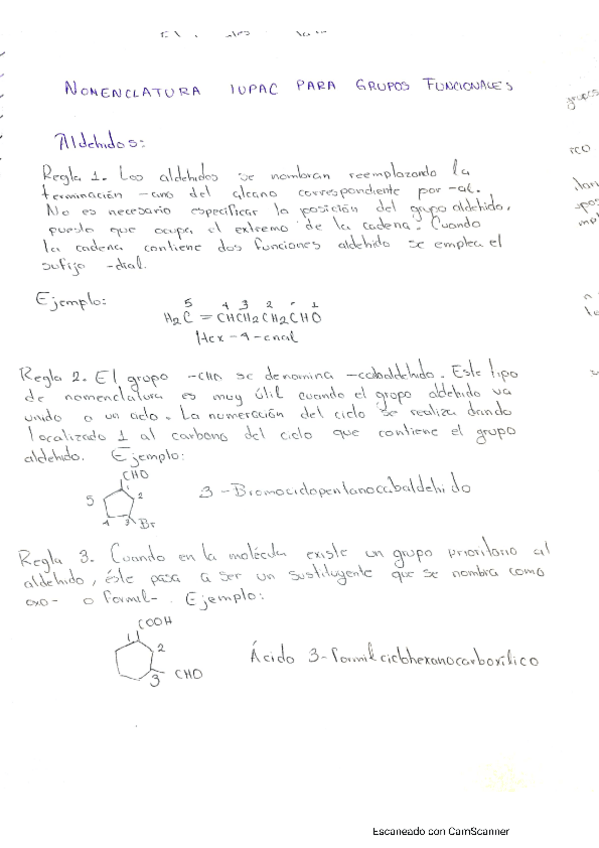 NOMENCLATURA IUPAC PARA GRUPOS FUNCIONALES
Aldehidos:
Regla 1. Los aldehidos se nombran reemplazando la
terminación -ano del alcano correspondiente por -al.
No es necesario especificar la posición del grupo aldehido,
puesto que ocupa el extremo de la cadena. Cuando
la cadena contiene dos funciones aldehido se emplea el
sufijo -dial.
Ejemplo:
5 4 3 2 1
H2C = CHCH2CH2CHO
Hex-4-enal
Regla 2. El grupo -CHO se denomina -cabaldehido. Este tipo
de nomenclatura es muy útil cuando el grupo aldehido va
unido a un ciclo. La numeración del ciclo se realiza dando
localizado 1 al carbono del ciclo que contiene el grupo
aldehido. Ejemplo:
CHO
1
5 2
4 3 Br
3-Bromociclopentanocabaldehido
Regla 3. Cuando en la molécula existe un grupo prioritorio al
aldehido, éste pasa a ser un sustituyente que se nombra como
oxo- o formil-. Ejemplo:
COOH
1
2
3 CHO
Ácido 3-formilciclohexanocarboxílico
grupos
rco
Escaneado con CamScanner